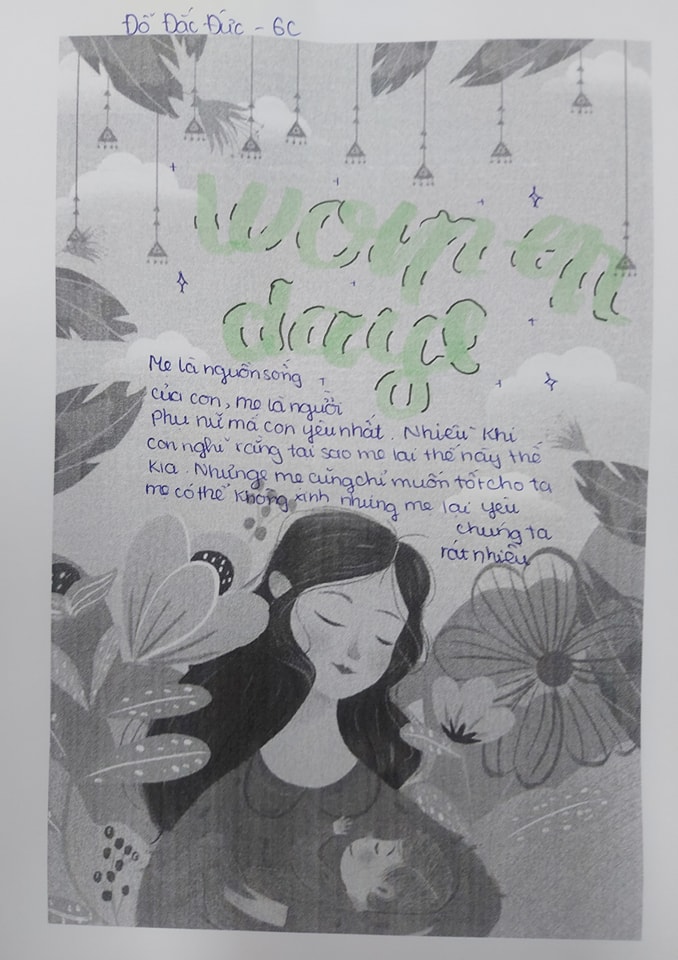 Đỗ Đắc Đức - 6C
women
days
Mẹ là nguồn sống
của con, mẹ là người
Phụ nữ mà con yêu nhất. Nhiều khi
con nghĩ rằng tại sao mẹ lại thế này thế
kia. Nhưng mẹ cũng chỉ muốn tốt cho ta
mẹ có thể không xinh nhưng mẹ lại yêu
chúng ta
rất nhiều